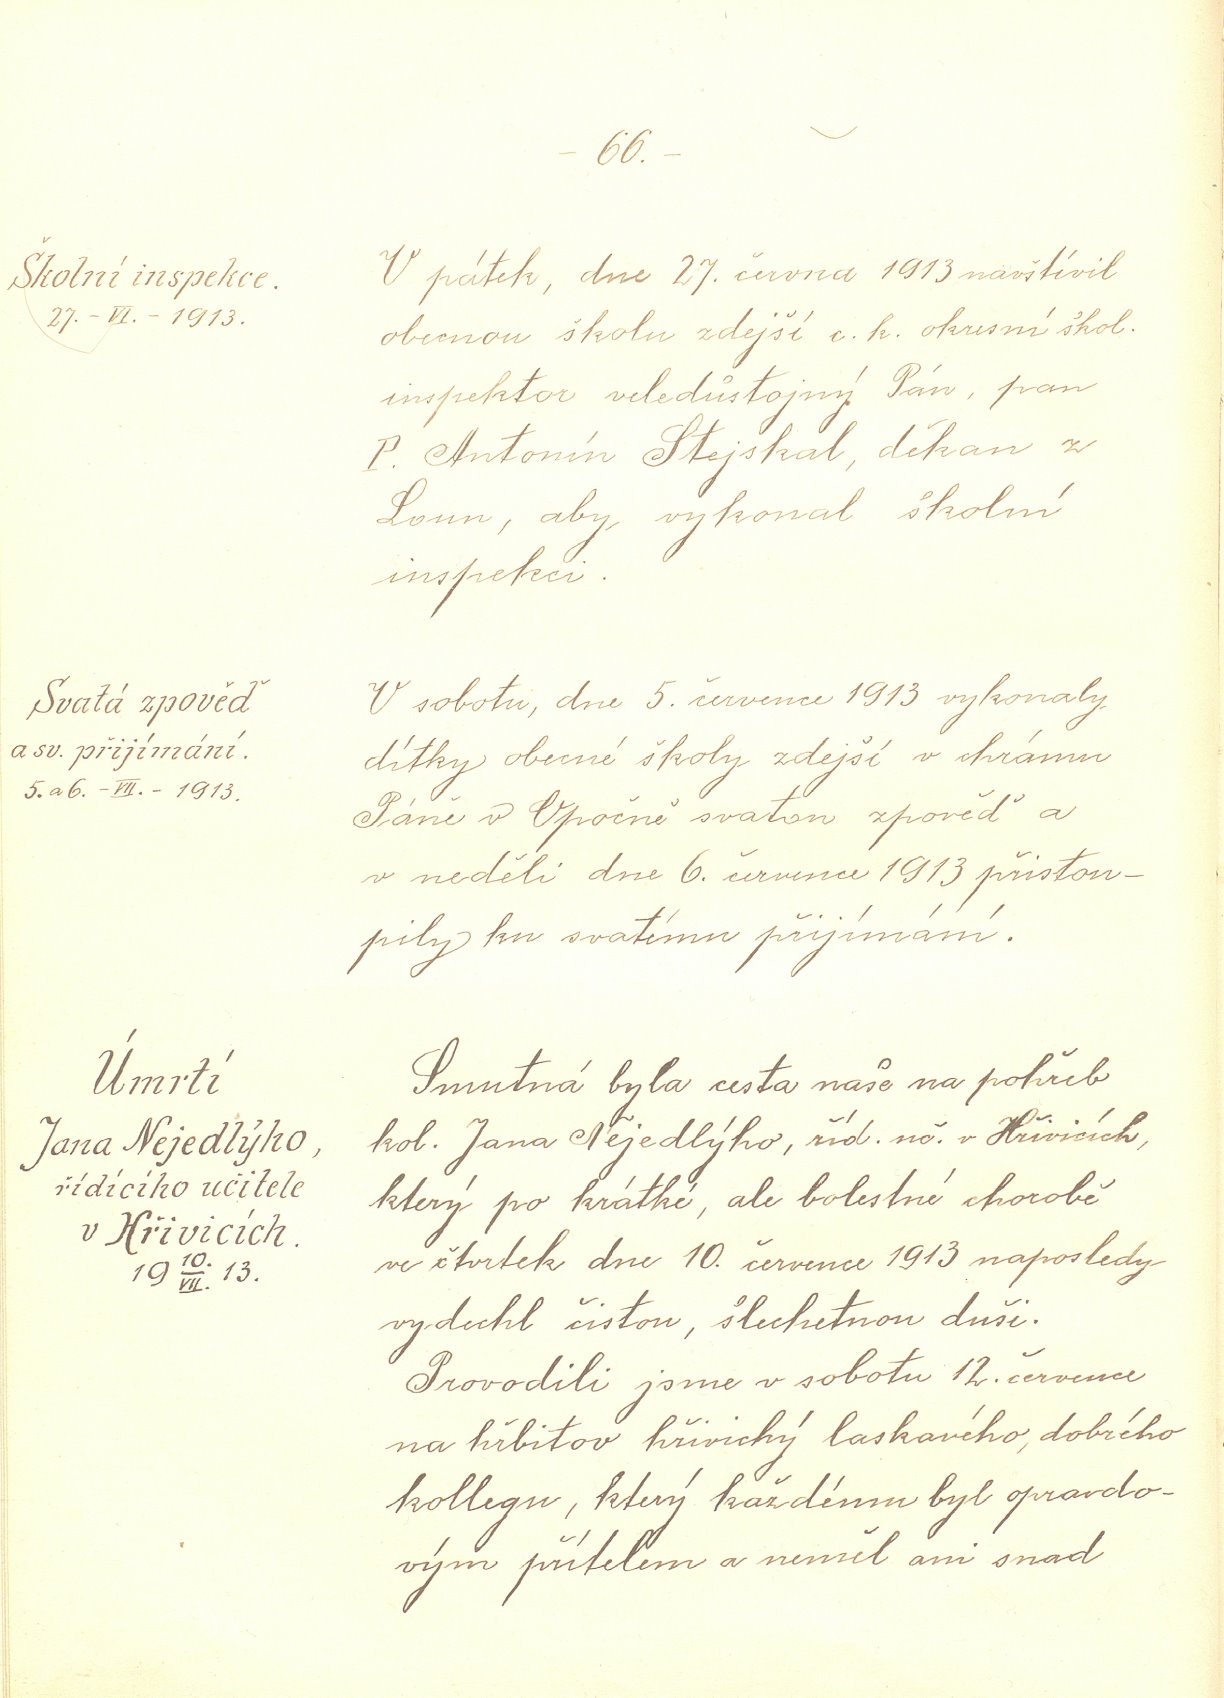 – 66. –
Školní inspekce.
27. – VI. – 1913.
V pátek, dne 27. června 1913 navštívil
obecnou školu zdejší c. k. okresní škol.
inspektor veledůstojný Pán, pan
P. Antonín Stejskal, děkan z
Loun, aby vykonal školní
inspekci.
Svatá zpověď
a sv. přijímání.
5. a 6. – VII. – 1913.
V sobotu, dne 5. července 1913 vykonaly
dítky obecné školy zdejší v chrámu
Páně v Opočně svatou zpověď a
v neděli dne 6. července 1913 přistou–
pily ku svatému přijímání.
Úmrtí
Jana Nejedlýho,
řídícího učitele
v Hřivicích.
19 10./VII. 13.
Smutná byla cesta naše na pohřeb
kol. Jana Nejedlýho, říd. uč. v Hřivicích,
který po krátké, ale bolestné chorobě
ve čtvrtek dne 10. července 1913 naposledy
vydechl čistou, šlechetnou duši.
Provodili jsme v sobotu 12. července
na hřbitov hřivický laskavého, dobrého
kollegu, který každému byl opravdo–
vým přítelem a neměl ani snad